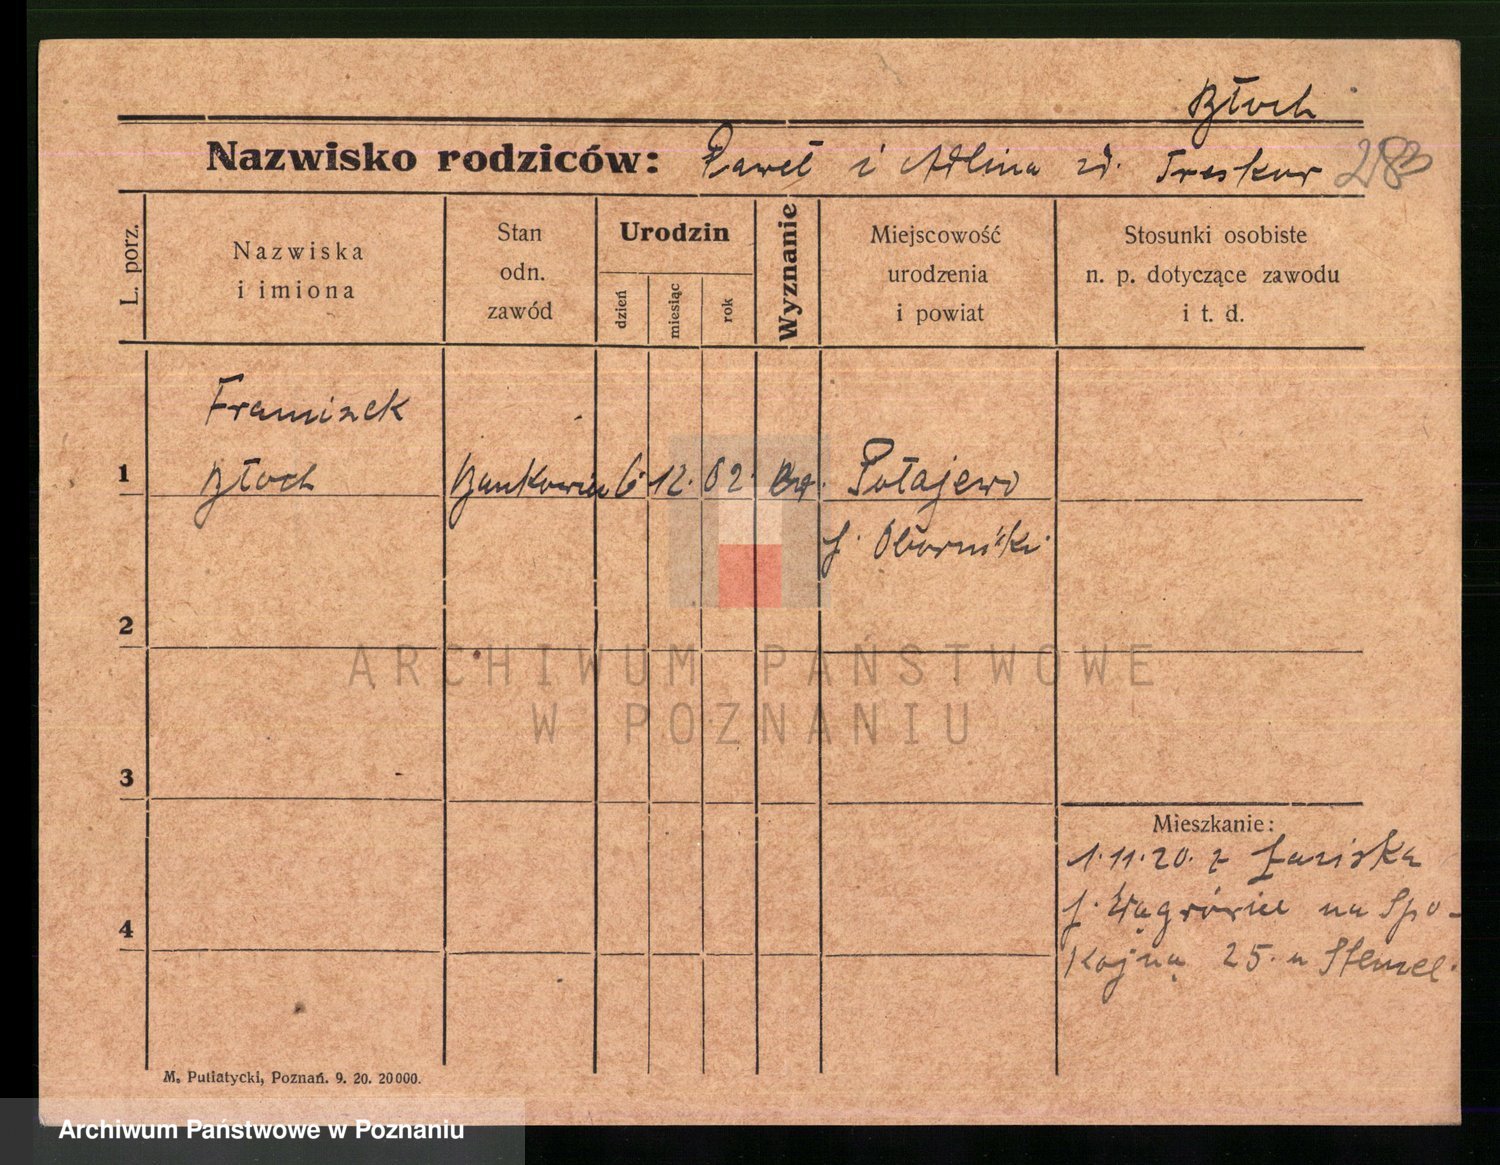 Błoch
Nazwisko rodziców: Paweł i Adlina zd. Treskow 283
L. porz.
Nazwiska
i imiona
Stan
odn.
zawód
Urodzin
dzień
miesiąc
rok
Wyznanie
Miejscowość
urodzenia
i powiat
Stosunki osobiste
n. p. dotyczące zawodu
i t. d.
Franciszek
1 Błoch Bankowiec 6. 12. 02. Połajewo
p. Oborniki
2
ARCHIWUM PAŃSTWOWE
W POZNANIU
3
Mieszkanie:
1.11.20. z
p. Wągrówiec na Spo-
4
kojną 25. u Stencel.
M. Putiatycki, Poznań. 9. 20. 20000.
Archiwum Państwowe w Poznaniu